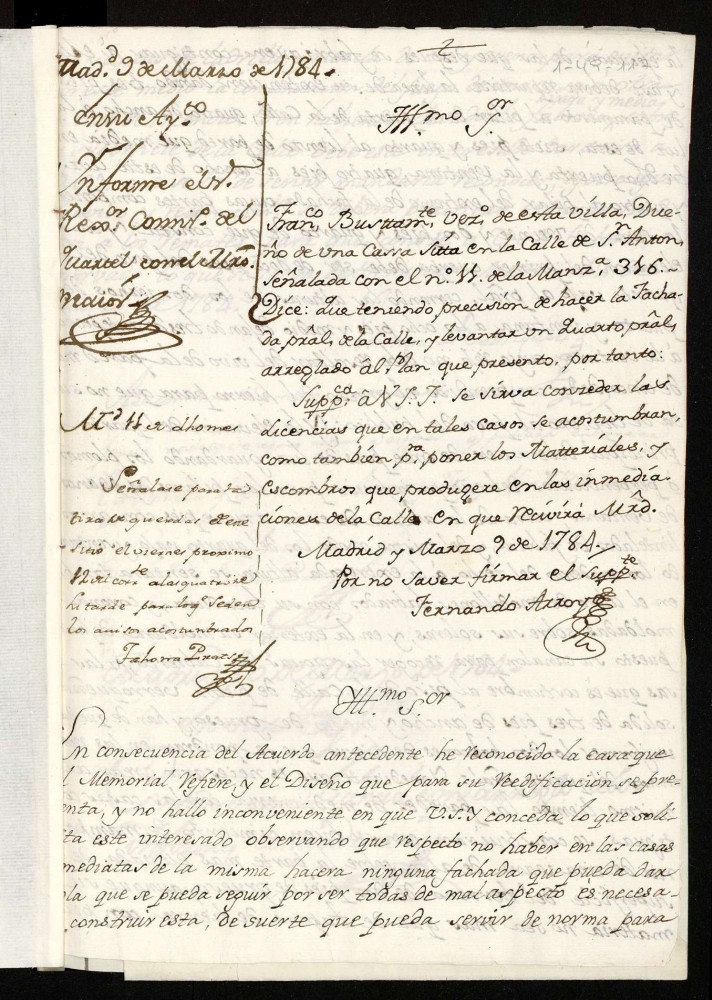 Mad.d 9 de Marzo de 1784.
1-49-112
En su Ay.to
Ynforme el S.r
Rexo.r Comis.o del
Quartel con el Mro.
maior
Yll.mo S.or
Fran.co Bustam.te vez.o de esta villa, Due-
ño de una Cassa sitta en la Calle de S.n Anton,
señalada con el n.o 11. de la Manz.a 316.-
Dice: que teniendo precision de hacer la Facha-
da pral, de la Calle, y levantar un Quarto pral,
arreglado al Plan que presento, por tanto:
Supp.ca â V.S.Y. se sirva conzeder las
Licencias que en tales casos se acostumbran,
como también p.ra poner los Matteriales, y
escombros que produgere en las inmedia-
ciones de la Calle en que recivirá Mrd.
Madrid y Marzo 9 de 1784.-
Por no saver firmar el supp.te
Fernando Arroyo
Señalase para la
tira de querdas de ese
sitio el viernes proximo
12 del corr.te a las quatro de
la tarde para lo q.e se den
los avisos acostumbrados
Yll.mo S.or
En consecuencia del Acuerdo antecedente he reconocido la casa que
el Memorial refiere, y el Diseño que para su reedificación se pre-
enta, y no hallo inconveniente en que V.S.Y conceda lo que soli-
ta este interesado observando que respecto no haber en las casas
mediatas de la misma hacera ninguna fachada que pueda dar
la que se pueda seguir por ser todas de mal aspecto es necesa-
construir esta, de suerte que pueda servir de norma para